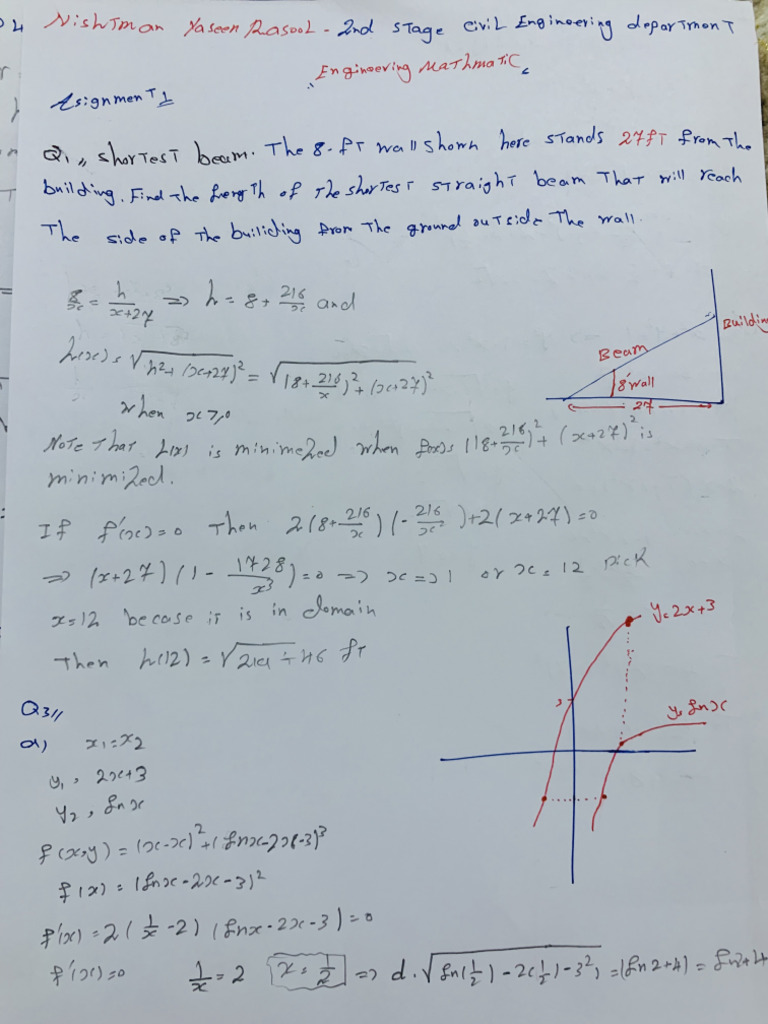 Nishtman Yaseen Rasool - 2nd stage Civil Engineering department
"Engineering Mathmatic"
Asignment 1
Q1,, shortest beam. The 8-ft wall shown here stands 27ft from the
building. Find the length of the shortest straight beam that will reach
The side of the builiding from the ground outside the wall.
8/x = h/x+27 => h = 8 + 216/x and
L(x) = √h²+(x+27)² = √(8+216/x)²+(x+27)²
when x≥0
Building
Beam
8' wall
27
Note that L(x) is minimezed when f(x)= (8+216/x)² + (x+27)² is
minimized.
If f'(x)=0 then 2(8+216/x)(-216/x²)+2(x+27)=0
=> (x+27)(1 - 1728/x³)=0 => x=>1 or x= 12 pick
x=12 becase it is in domain
Then L(12) = ÷ 46 ft
y=2x+3
3
y= lnx
Q3//
a) x₁=x₂
y₁, 2x+3
y₂, lnx
f(x,y) = (x-x)²+(lnx-2x-3)³
f(x) = (lnx-2x-3)²
f'(x) = 2(1/x -2) (lnx-2x-3)=0
f'(x)=0 1/x = 2 x = 1/2 => d.√ln(1/2)-2(1/2)-3²) = (ln2+4) = ln2+4